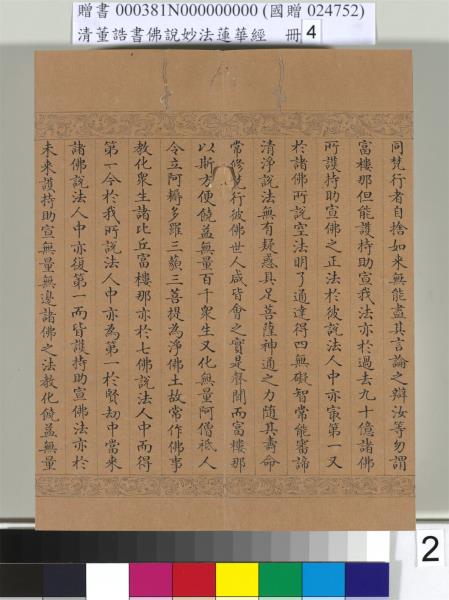 贈書 000381N000000000 (國贈 024752)
清董誥書佛說妙法蓮華經 冊 4
同梵行者自捨如来無能盡其言論之辯汝等勿謂
富樓那但能護持助宣我法亦於過去九十億諸佛
所護持助宣佛之正法於彼說法人中亦㝡第一又
於諸佛所說空法明了通達得四無礙智常能審諦
清淨說法無有疑惑具足菩薩神通之力隨其壽命
常修梵行彼佛世人咸皆會之實是聲聞而富樓那
以斯方便饒益無量百千衆生又化無量阿僧祇人
令立阿耨多羅三藐三菩提為淨佛土故常作佛事
教化衆生諸比丘富樓那亦於七佛說法人中而得
第一今於我所說法人中亦為第一於賢劫中當来
諸佛說法人中亦復第一而皆護持助宣佛法亦於
未来護持助宣無量無邊諸佛之法教化饒益無量
2